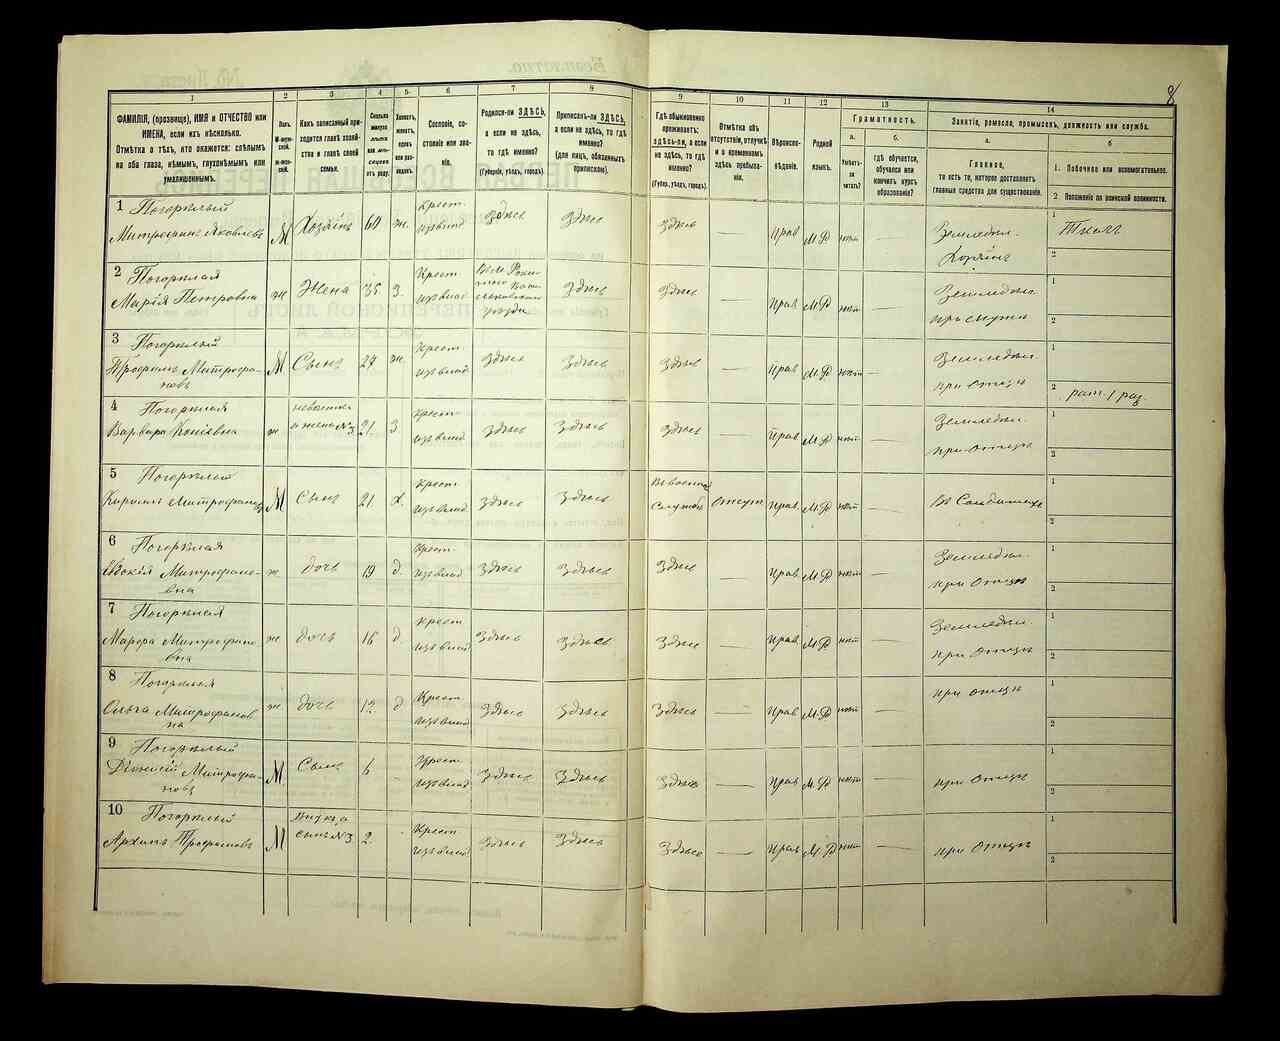 8
1 2 3 4 5 6 7 8 9 10 11 12 13 14
ФАМИЛІЯ, (прозвище), ИМЯ и ОТЧЕСТВО или
ИМЕНА, если ихъ нѣсколько.
Отмѣтка о тѣхъ, кто окажется: слѣпымъ
на оба глаза, нѣмымъ, глухонѣмымъ или
умалишеннымъ.
Полъ.
М-муж-
ской.
Ж-жен-
скій.
Какъ записанный при-
ходится главѣ хозяй-
ства и главѣ своей
семьи.
Сколько
минуло
лѣтъ
или мѣ-
сяцевъ
отъ роду.
Холостъ,
женатъ,
вдовъ
или раз-
веденъ.
Сословіе, со-
стояніе или зва-
ніе.
Родился-ли ЗДѢСЬ,
а если не здѣсь,
то гдѣ именно?
(Губернія, уѣздъ, городъ).
Приписанъ-ли ЗДѢСЬ,
а если не здѣсь, то гдѣ
именно?
(для лицъ, обязанныхъ
припискою).
Гдѣ обыкновенно
проживаетъ:
здѣсь-ли, а если
не здѣсь, то гдѣ
именно?
(Губер., уѣздъ, городъ).
Отмѣтка объ
отсутствіи, отлучкѣ
и о временномъ
здѣсь пребыва-
ніи.
Вѣроиспо-
вѣданіе.
Родной
языкъ.
Грамотность.
а.
Умѣетъ-
ли
читать?
б.
гдѣ обучается,
обучался или
кончилъ курсъ
образованія?
Занятіе, ремесло, промыселъ, должность или служба.
а.
Главное,
то есть то, которое доставляетъ
главныя средства для существованія.
б
1. Побочное или вспомогательное.
2 Положеніе по воинской повинности.
1 Погорѣлый
Митрофанъ Яковлевъ М Хозяинъ 60 ж. Крест. изъ влад здѣсь здѣсь здѣсь — Прав М.Р нѣт — Земледѣл. 1 2
2 Погорѣлая
Марія Петровна ж Жена 35 З. Крест. изъ влад уѣзда здѣсь здѣсь — Прав М.Р нѣт — Земледѣл. при мужѣ 1 2
3 Погорѣлый
Трофимъ Митрофа-
новъ М Сынъ 27 ж. Крест. изъ влад здѣсь здѣсь здѣсь — Прав М.Р нѣт — Земледѣл. при отцѣ 1 2 рат. 1 раз
4 Погорѣлая
Варвара ж невѣстка и жена №3 21 З Крест. изъ влад здѣсь здѣсь здѣсь — Прав М.Р нѣт — Земледѣл. при отцѣ 1 2
5 Погорѣлый
Кирилъ Митрофановъ М Сынъ 21. Х. Крест. изъ влад здѣсь здѣсь В военной службѣ Отсут Прав М.Р нѣт — 1 2
6 Погорѣлая
Митрофано-
вна ж. дочь 19 д. Крест. изъ влад здѣсь здѣсь здѣсь — Прав М.Р нѣт — Земледѣл. при отцѣ 1 2
7 Погорѣлая
Митрофано-
вна ж дочь 16 д. Крест изъ влад здѣсь здѣсь здѣсь — Прав М.Р нѣт — Земледѣл. при отцѣ 1 2
8 Погорѣлая
Ольга Митрофанов
на ж дочь 12. д Крест изъ влад здѣсь здѣсь здѣсь — Прав М.Р нѣт — при отцѣ 1 2
9 Погорѣлый
Митрофа-
новъ М. Сынъ 6 — Крест изъ влад здѣсь здѣсь здѣсь — Прав М.Р нѣт — при отцѣ 1 2
10 Погорѣлый
Архипъ Трофимовъ М Внукъ а сынъ №3 2. — Крест изъ влад здѣсь здѣсь здѣсь — Прав М.Р нѣт — при отцѣ 1 2